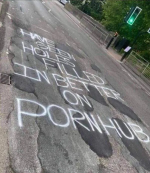 HAVE
SEEN
HOLES
FILLED
IN BETTER
ON
PORNHUB